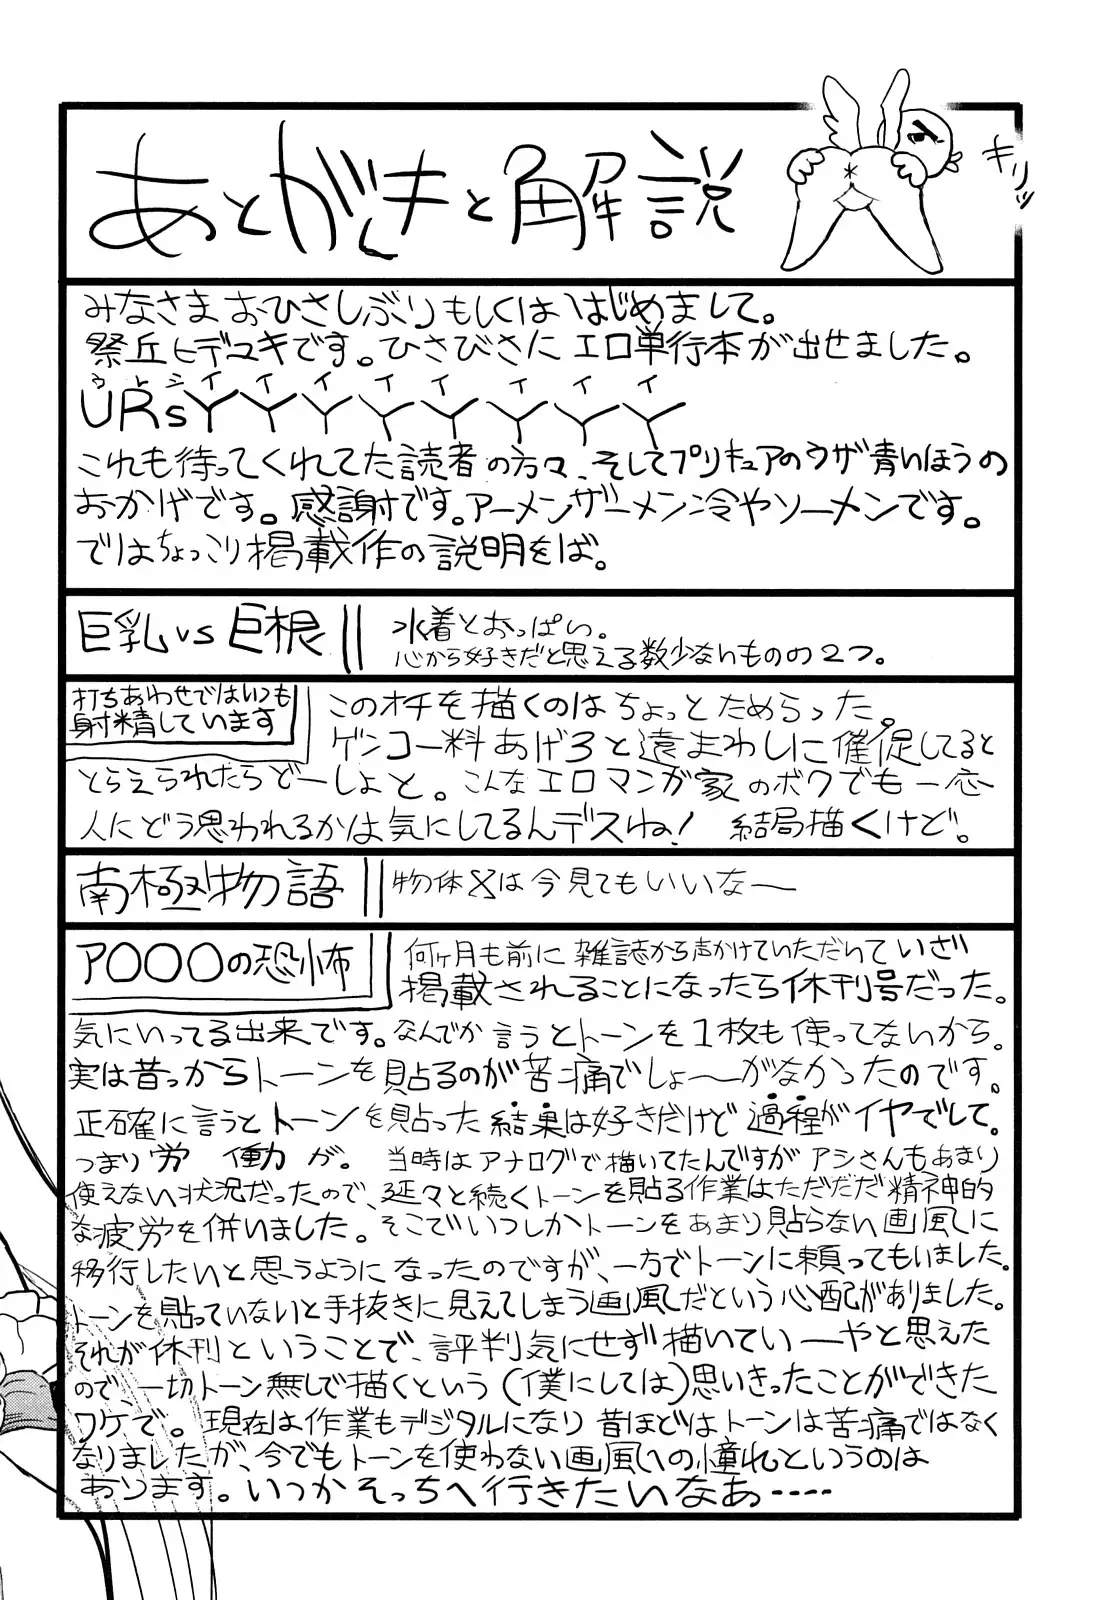 あとがきと解説
キリッ
みなさまおひさしぶりもしくははじめまして。
祭丘ヒデユキです。ひさびさにエロ単行本が出せました。
ウレシイイイイイイイイ
URsYYYYYYYY
これも待ってくれてた読者の方々、そしてプリキュアのウザ青いほうの
おかげです。感謝です。アーメンザーメン冷やソーメンです。
ではちょっこり掲載作の説明をば。
巨乳vs巨根
水着とおっぱい。
心から好きだと思える数少ないものの2つ。
打ちあわせではいつも
射精しています
このオチを描くのはちょっとためらった。
ゲンコー料あげろと遠まわしに催促してると
とらえられたらどーしよと。こんなエロマンガ家のボクでも一応
人にどう思われるかは気にしてるんデスね! 結局描くけど。
南極物語
物体Xは今見てもいいな〜
ア〇〇〇の恐怖
何ヶ月も前に雑誌から声かけていただいていざ
掲載されることになったら休刊号だった。
気にいってる出来です。なんでか言うとトーンを1枚も使ってないから。
実は昔っからトーンを貼るのが苦痛でしょ〜がなかったのです。
正確に言うとトーンを貼った結果は好きだけど過程がイヤでして。
つまり労働が。当時はアナログで描いてたんですがアシさんもあまり
使えない状況だったので、延々と続くトーンを貼る作業はただだだ精神的
な疲労を併いました。そこでいつしかトーンをあまり貼らない画風に
移行したいと思うようになったのですが、一方でトーンに頼ってもいました。
トーンを貼っていないと手抜きに見えてしまう画風だという心配がありました。
それが休刊ということで、評判気にせず描いていーやと思えた
ので一切トーン無しで描くという(僕にしては)思いきったことができた
ワケで。現在は作業もデジタルになり昔ほどはトーンは苦痛ではなく
なりましたが、今でもトーンを使わない画風への憧れというのは
あります。いつかそっちへ行きたいなあ‥‥‥